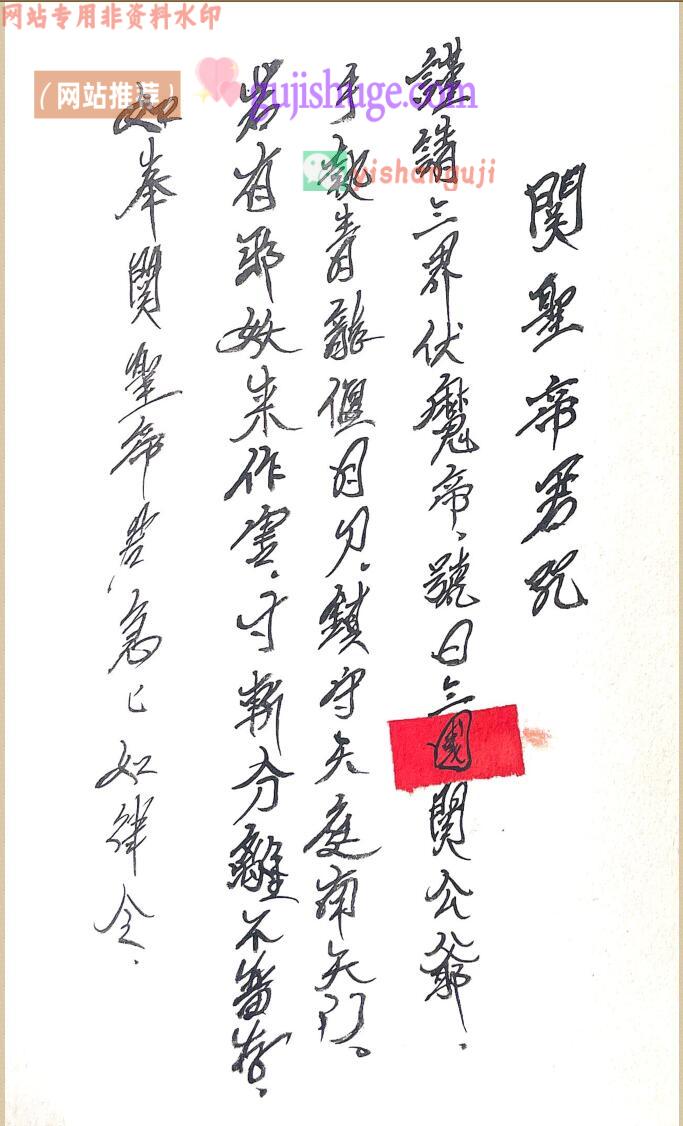 网站专用非资料水印
（网站推荐）
gujishuge.com
yishanguji
関聖帝君咒
謹請三界伏魔帝、號曰三国関公爺、
手執青龍偃月刀、鎮守天庭南天門。
若有邪妖来作害、寸斬分離不留存、
如奉関聖帝君急〻如律令、